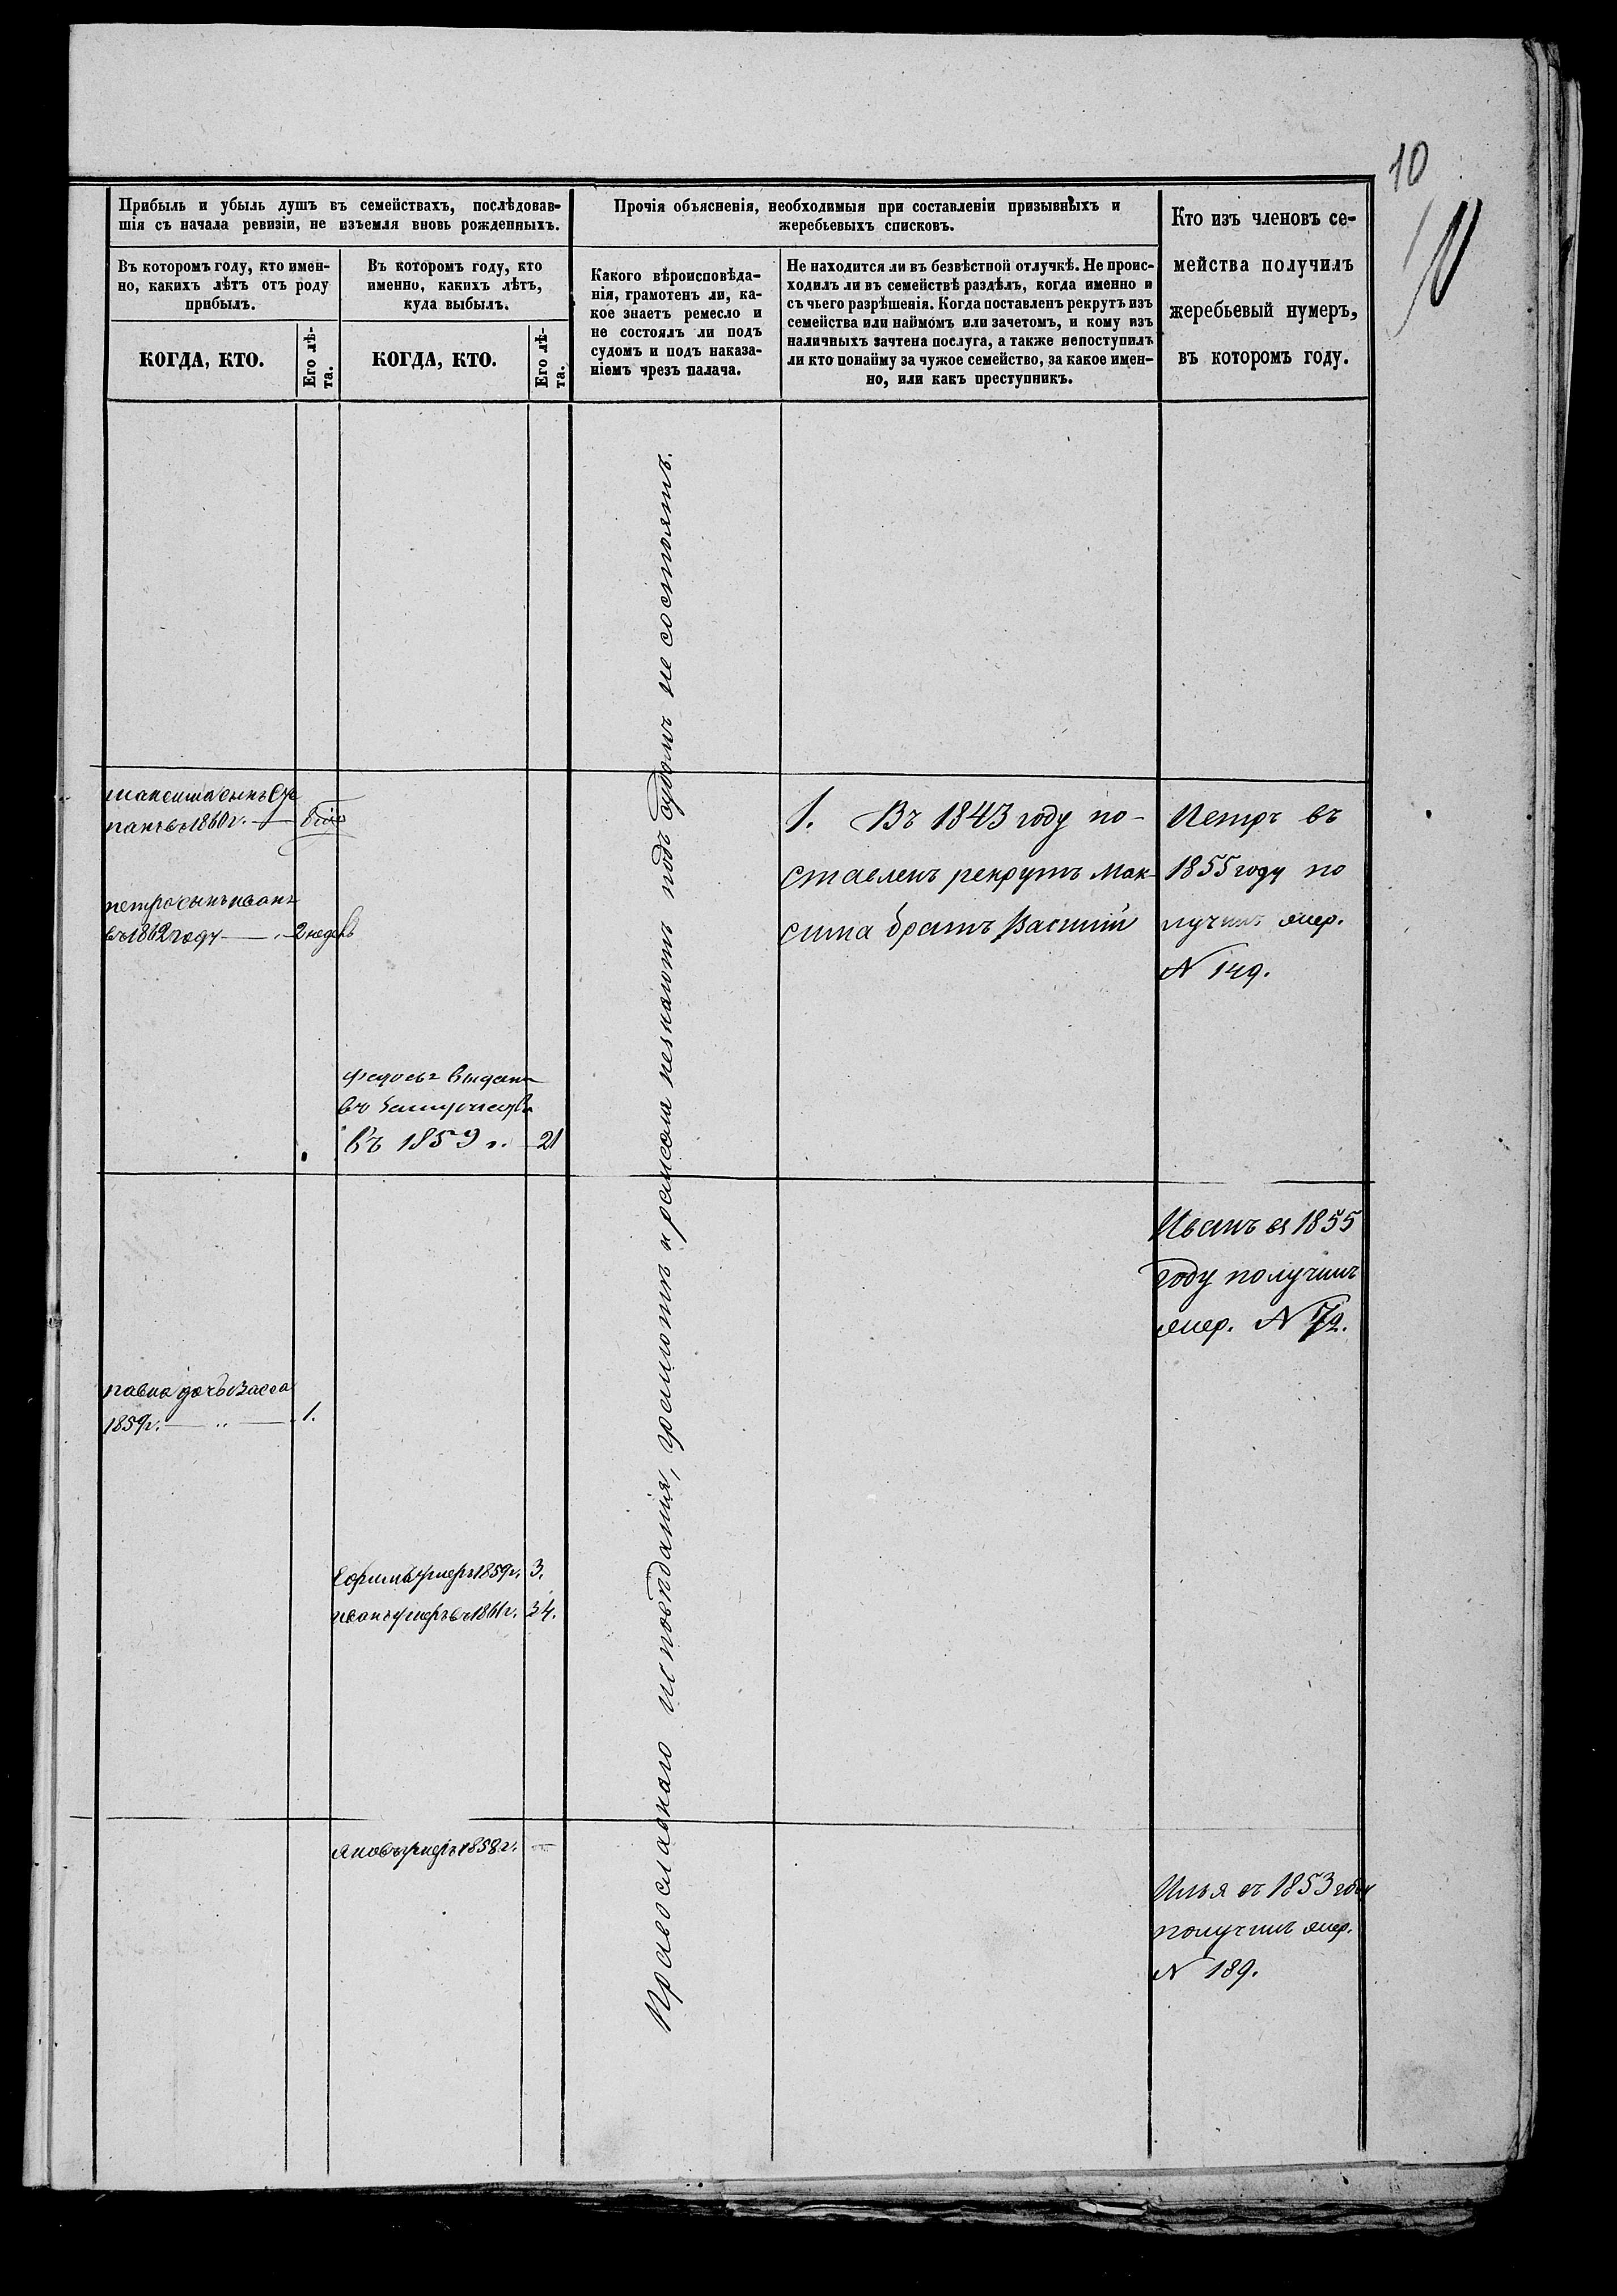 10
Прибыль и убыль душъ въ семействахъ, послѣдовав-
шія съ начала ревизіи, не изъемля вновь рожденныхъ.
Прочія объясненія, необходимыя при составленіи призывныхъ и
жеребьевыхъ списковъ.
Кто изъ членовъ се-
мейства получилъ
жеребьевый нумеръ,
въ которомъ году.
Въ которомъ году, кто имен-
но, какихъ лѣтъ отъ роду
прибылъ.
Въ которомъ году, кто
именно, какихъ лѣтъ,
куда выбылъ.
Какого вѣроисповѣда-
нія, грамотенъ ли, ка-
кое знаетъ ремесло и
не состоялъ ли подъ
судомъ и подъ наказа-
ніемъ чрезъ палача.
Не находится ли въ безвѣстной отлучкѣ. Не проис-
ходилъ ли въ семействѣ раздѣлъ, когда именно и
съ чьего разрѣшенія. Когда поставленъ рекрутъ изъ
семейства или наймомъ или зачетомъ, и кому изъ
наличныхъ зачтена послуга, а также непоступилъ
ли кто понайму за чужое семейство, за какое имен-
но, или какъ преступникъ.
КОГДА, КТО.
Его лѣ-
та.
КОГДА, КТО.
Его лѣ-
та.
Православнаго исповѣданія, грамотѣ и ремесла незнаютъ подъ судомъ не состоятъ.
максима сынъ
въ 1860 г.
петра сынъ иванъ
въ 1862 году 2 недѣль
1. Въ 1843 году по-
ставленъ рекрутъ Мак-
сима братъ Василій
Петръ въ
1855 году по
лучилъ жер.
N 149.
выдана
въ замужество
въ 1859 г. 21
Иванъ въ 1855
году получилъ
жер. N 172.
павла дочь васса
1859 г. 1.
умеръ 1859 г. 3.
иванъ умеръ въ 1861 г. 34.
яковъ умеръ 1858 г.
Илья въ 1853 году
получилъ жер.
N 189.